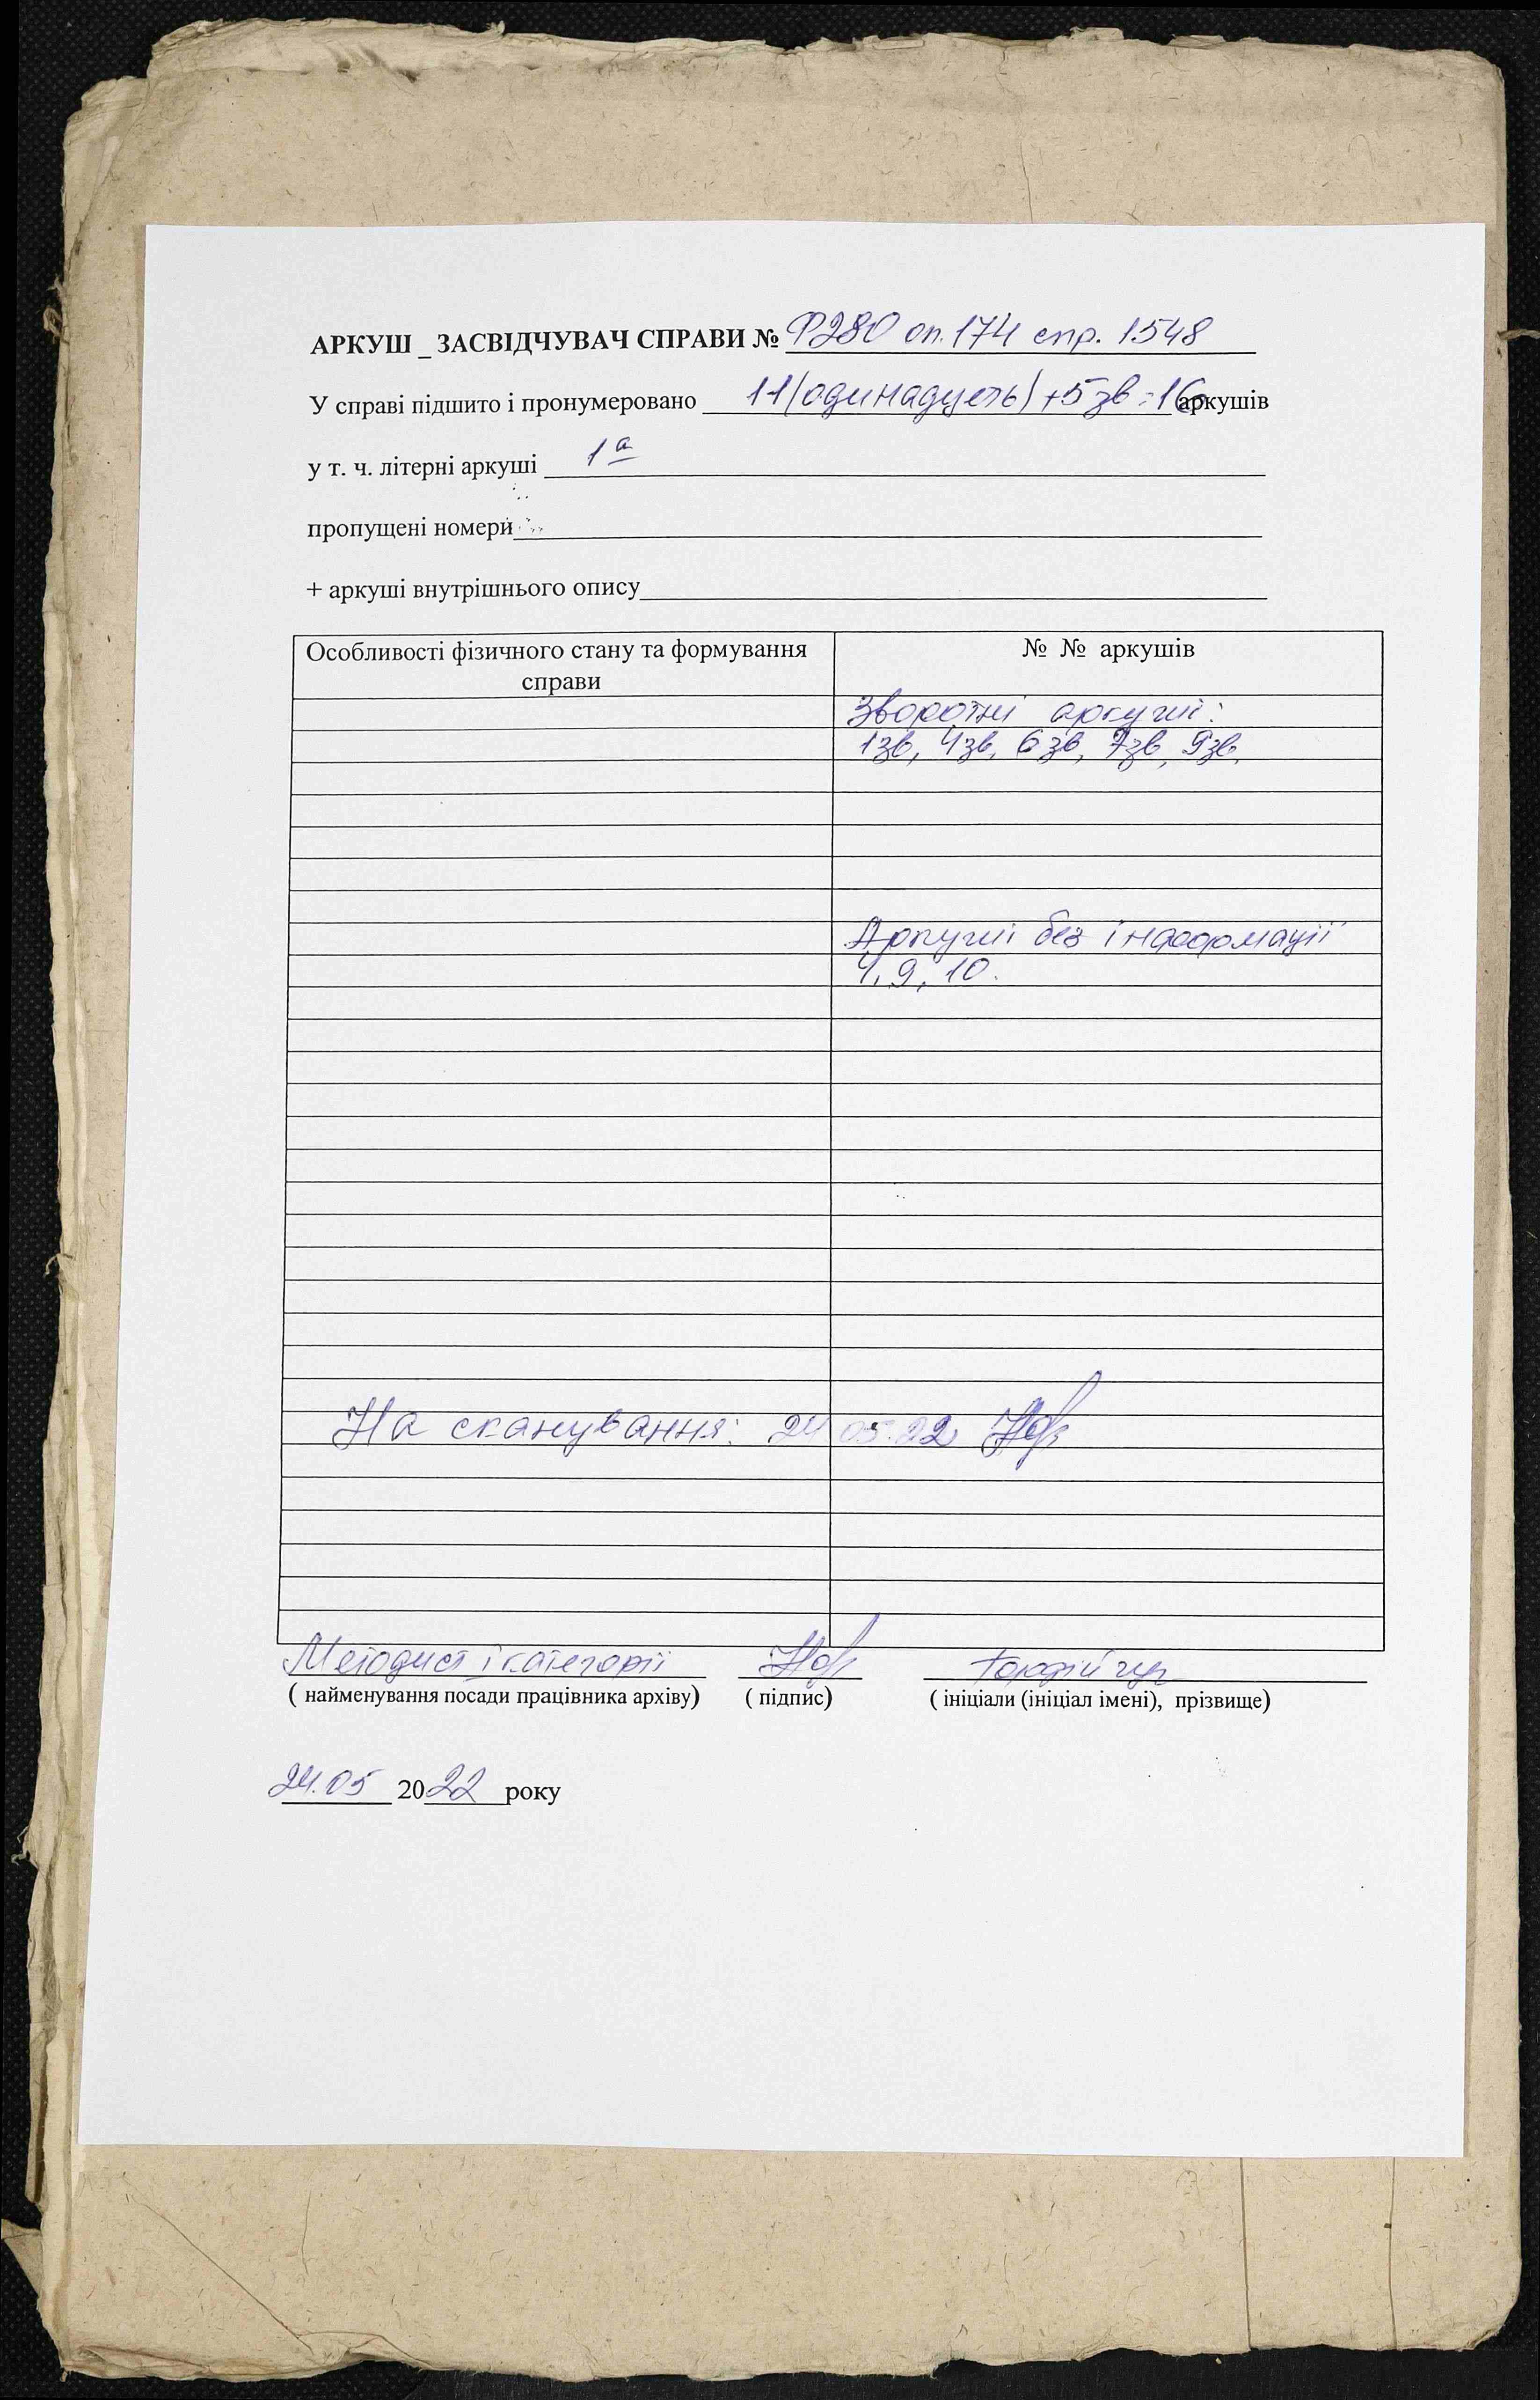 АРКУШ _ ЗАСВІДЧУВАЧ СПРАВИ № Ф280 оп. 174 спр. 1548
У справі підшито і пронумеровано 11 (одинадцять) + 5 зв = 16 аркушів
у т. ч. літерні аркуші 1а
пропущені номери
+ аркуші внутрішнього опису
Особливості фізичного стану та формування справи
№ № аркушів
Зворотні аркуші:
1зв, 4зв, 6зв, 7зв, 9зв.
Аркуші без інформації
4, 9, 10.
На сканування: 24.05.22
Методист І категорії
( найменування посади працівника архіву) ( підпис) ( ініціали (ініціал імені), прізвище)
24.05 2022 року